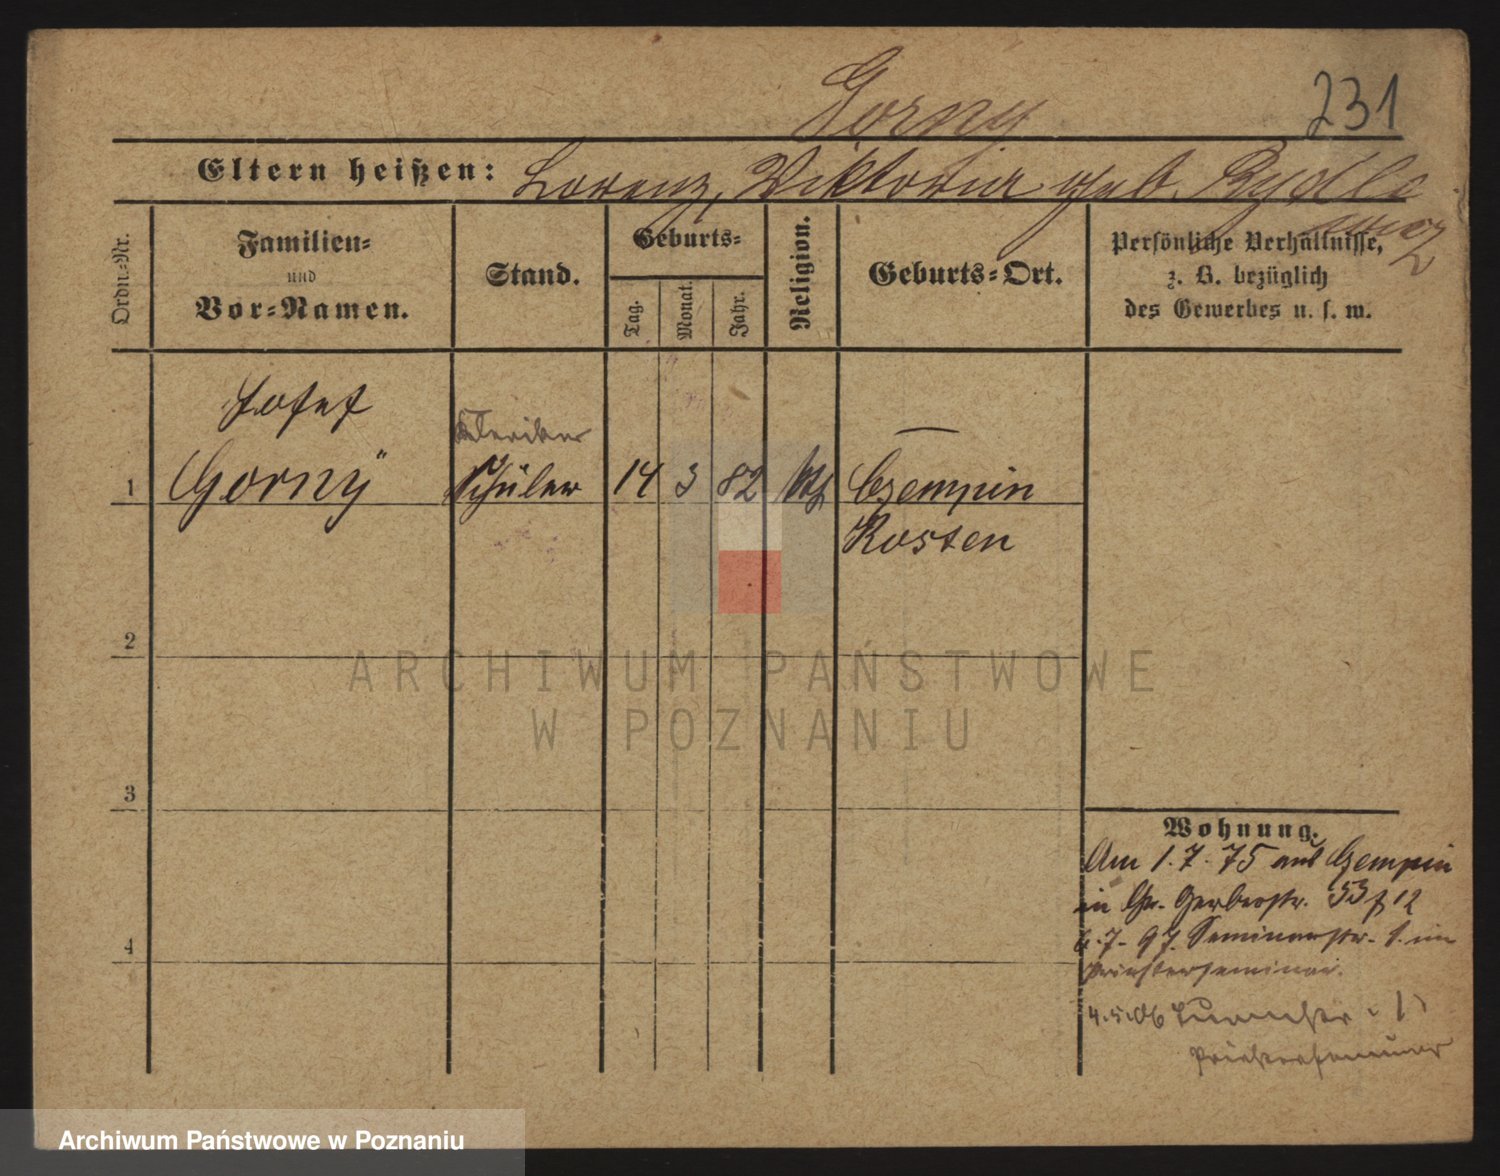 Gorny 231
Eltern heißen: Lorenz, Viktoria geb. Rydle
Ordn.-Nr.
Familien- und Vor-Namen.
Stand.
Geburts-
Tag. Monat. Jahr.
Religion.
Geburts-Ort.
Persönliche Verhältnisse,
z. B. bezüglich
des Gewerbes u. s. w.
Josef
Kleriker
1 Gorny Schüler 14 3 82 kth Czempin
Kosten
2
3
4
Wohnung.
Am 1.7.75 aus Czempin
in Gr. Gerberstr. 53 f 12
6.7.97 Seminarstr. 1. im
Priesterseminar.
4.5.06 1
Priesterseminar
ARCHIWUM PAŃSTWOWE
W POZNANIU
Archiwum Państwowe w Poznaniu